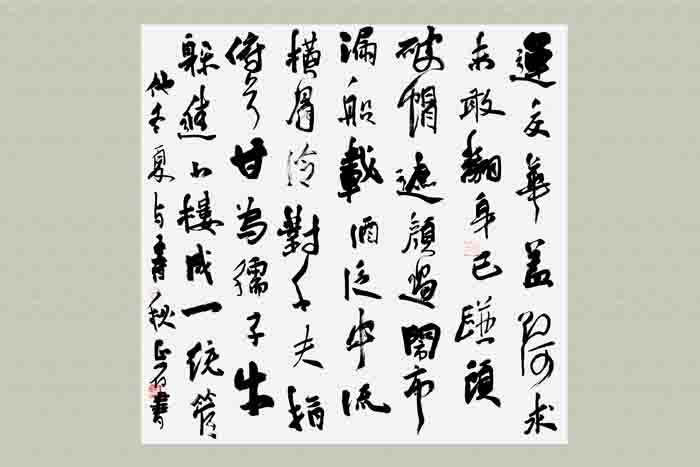 運交華蓋欲何求
未敢翻身已碰頭
破帽遮顏過鬧市
漏船載酒泛中流
橫眉冷對千夫指
俯首甘為孺子牛
躲進小樓成一統管
他冬夏與春秋 書